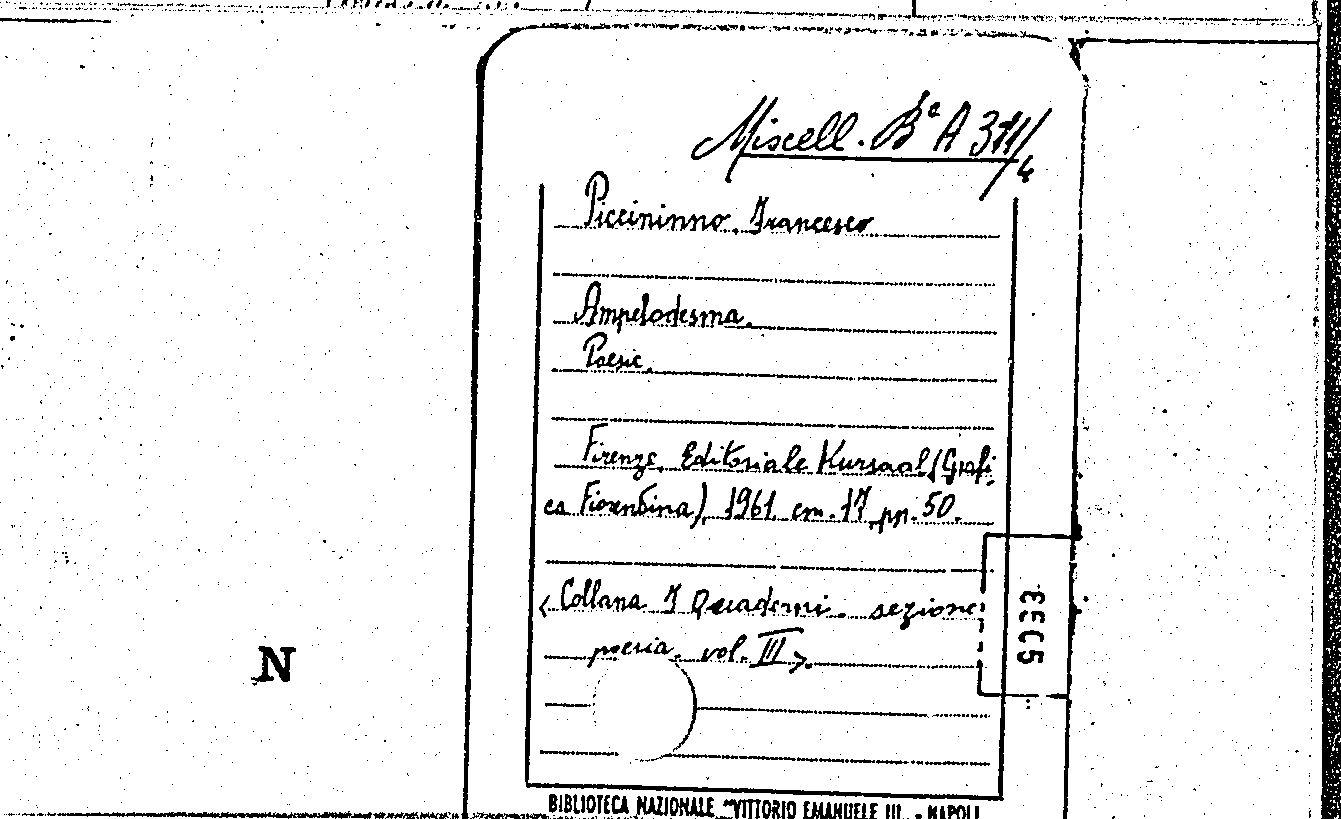 Miscell. Bª A 311/4
Piccininno Francesco
Ampelodesma.
Poesie.
Firenze, Editoriale Kursaal (Grafi-
ca Fiorentina), 1961 cm. 17 pp. 50.
< Collana I Quaderni. sezione
poesia. vol. III >.
N
BIBLIOTECA NAZIONALE "VITTORIO EMANUELE III. - NAPOLI